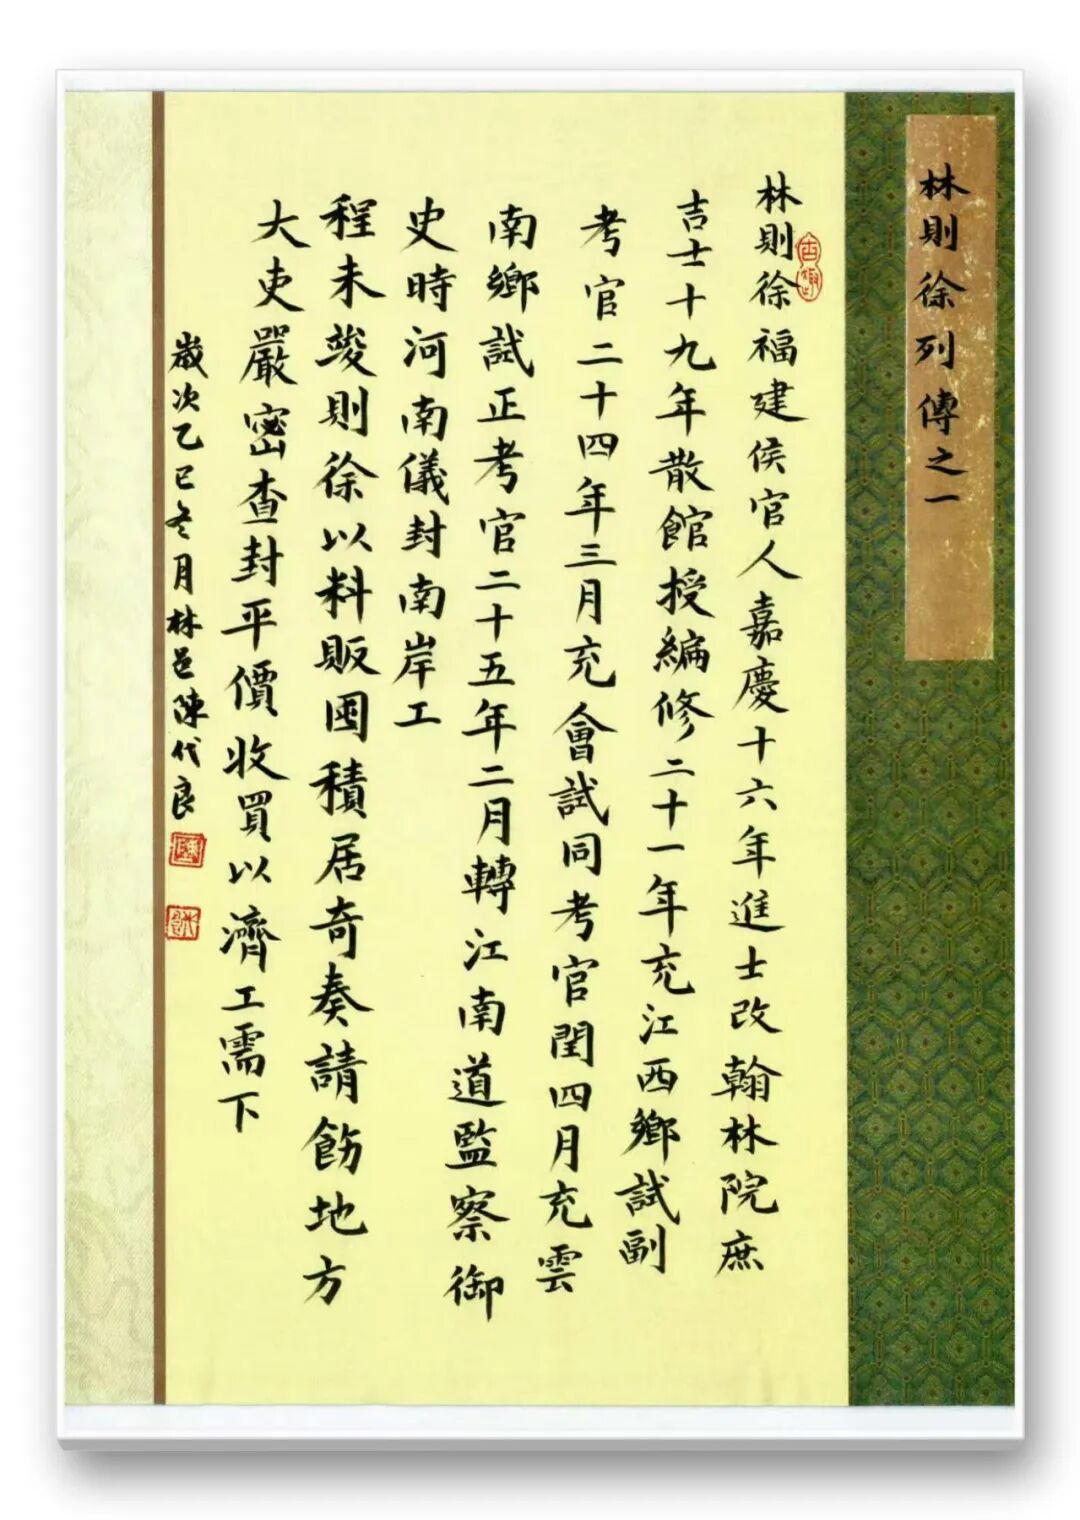 林則徐列傳之一
林則徐福建侯官人嘉慶十六年進士改翰林院庶
吉士十九年散館授編修二十一年充江西鄉試副
考官二十四年三月充會試同考官閏四月充雲
南鄉試正考官二十五年二月轉江南道監察御
史時河南儀封南岸工
程未竣則徐以料販囤積居奇奏請飭地方
大吏嚴密查封平價收買以濟工需下
歲次乙巳冬月林邑陳代良